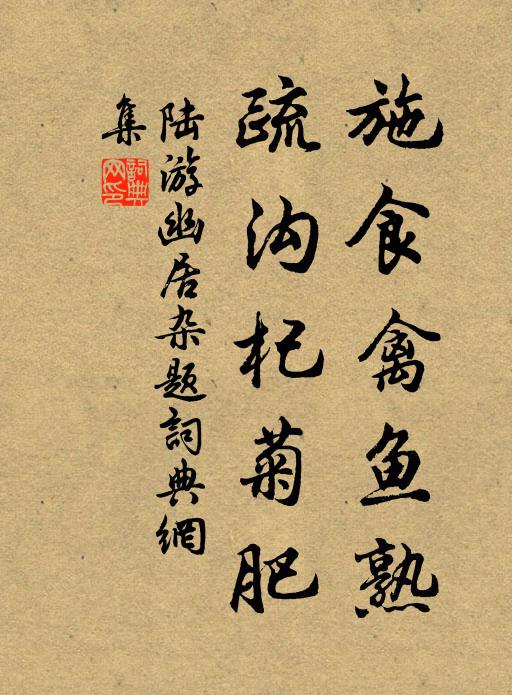 施食禽鱼熟
疏沟杞菊肥
陆游幽居杂题詞典網
集
詞典网印